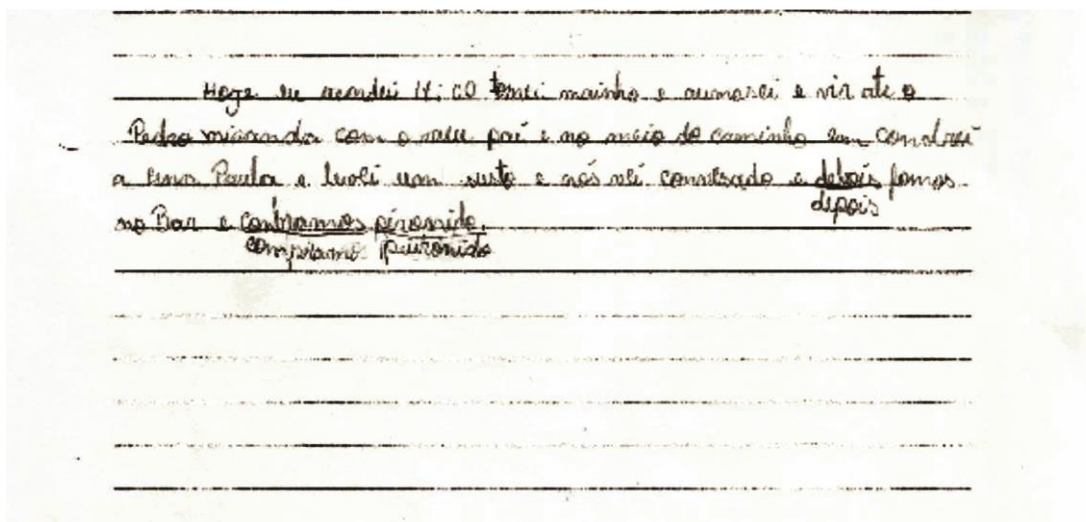 Hoje eu acordei 11:00 tomei mainho e aumosei e vir ate o
Pedro miranda com o meu pai e no meio do caminho em condrei
a Ana Paula e levoli um susto e nós vei convesado e debois fomos
depois
no Bar e contramos pironito.
compramo peironito